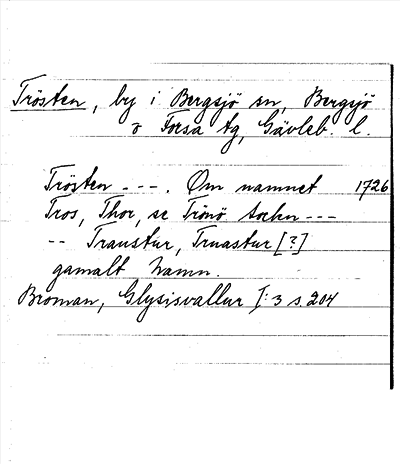 Trösten, by i Bergsjö sn, Bergsjö
o Forsa tg, Gävleb. l.
Trösten - - -. Om namnet 1726
Tros, Thor, se Trönö sochn - - -
- - Transtur, Truastur [?]
gamalt Namn.
Broman, Glysisvallur I:3 s. 204